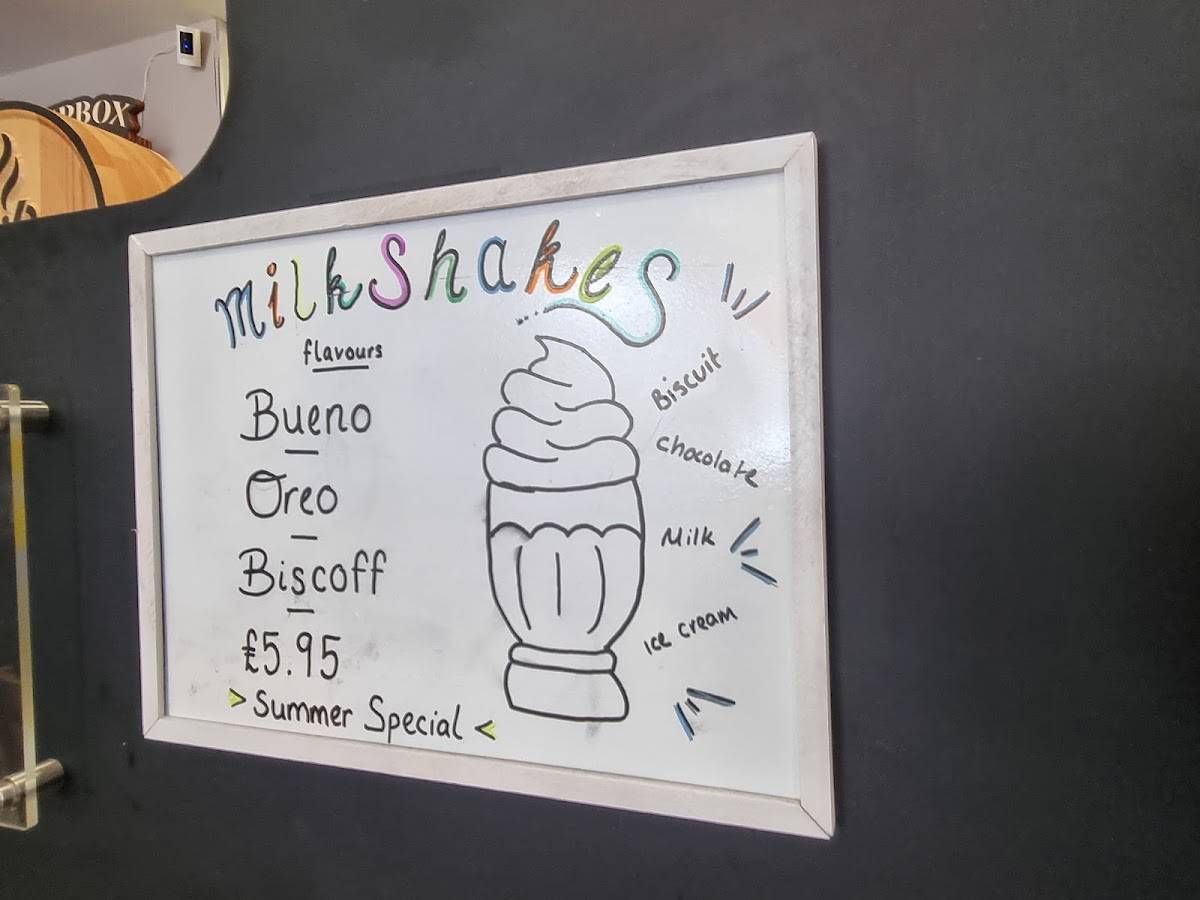 milkshakes
flavours
Bueno
Oreo
Biscoff
£5.95
> Summer Special <
Biscuit
chocolate
Milk
Ice cream